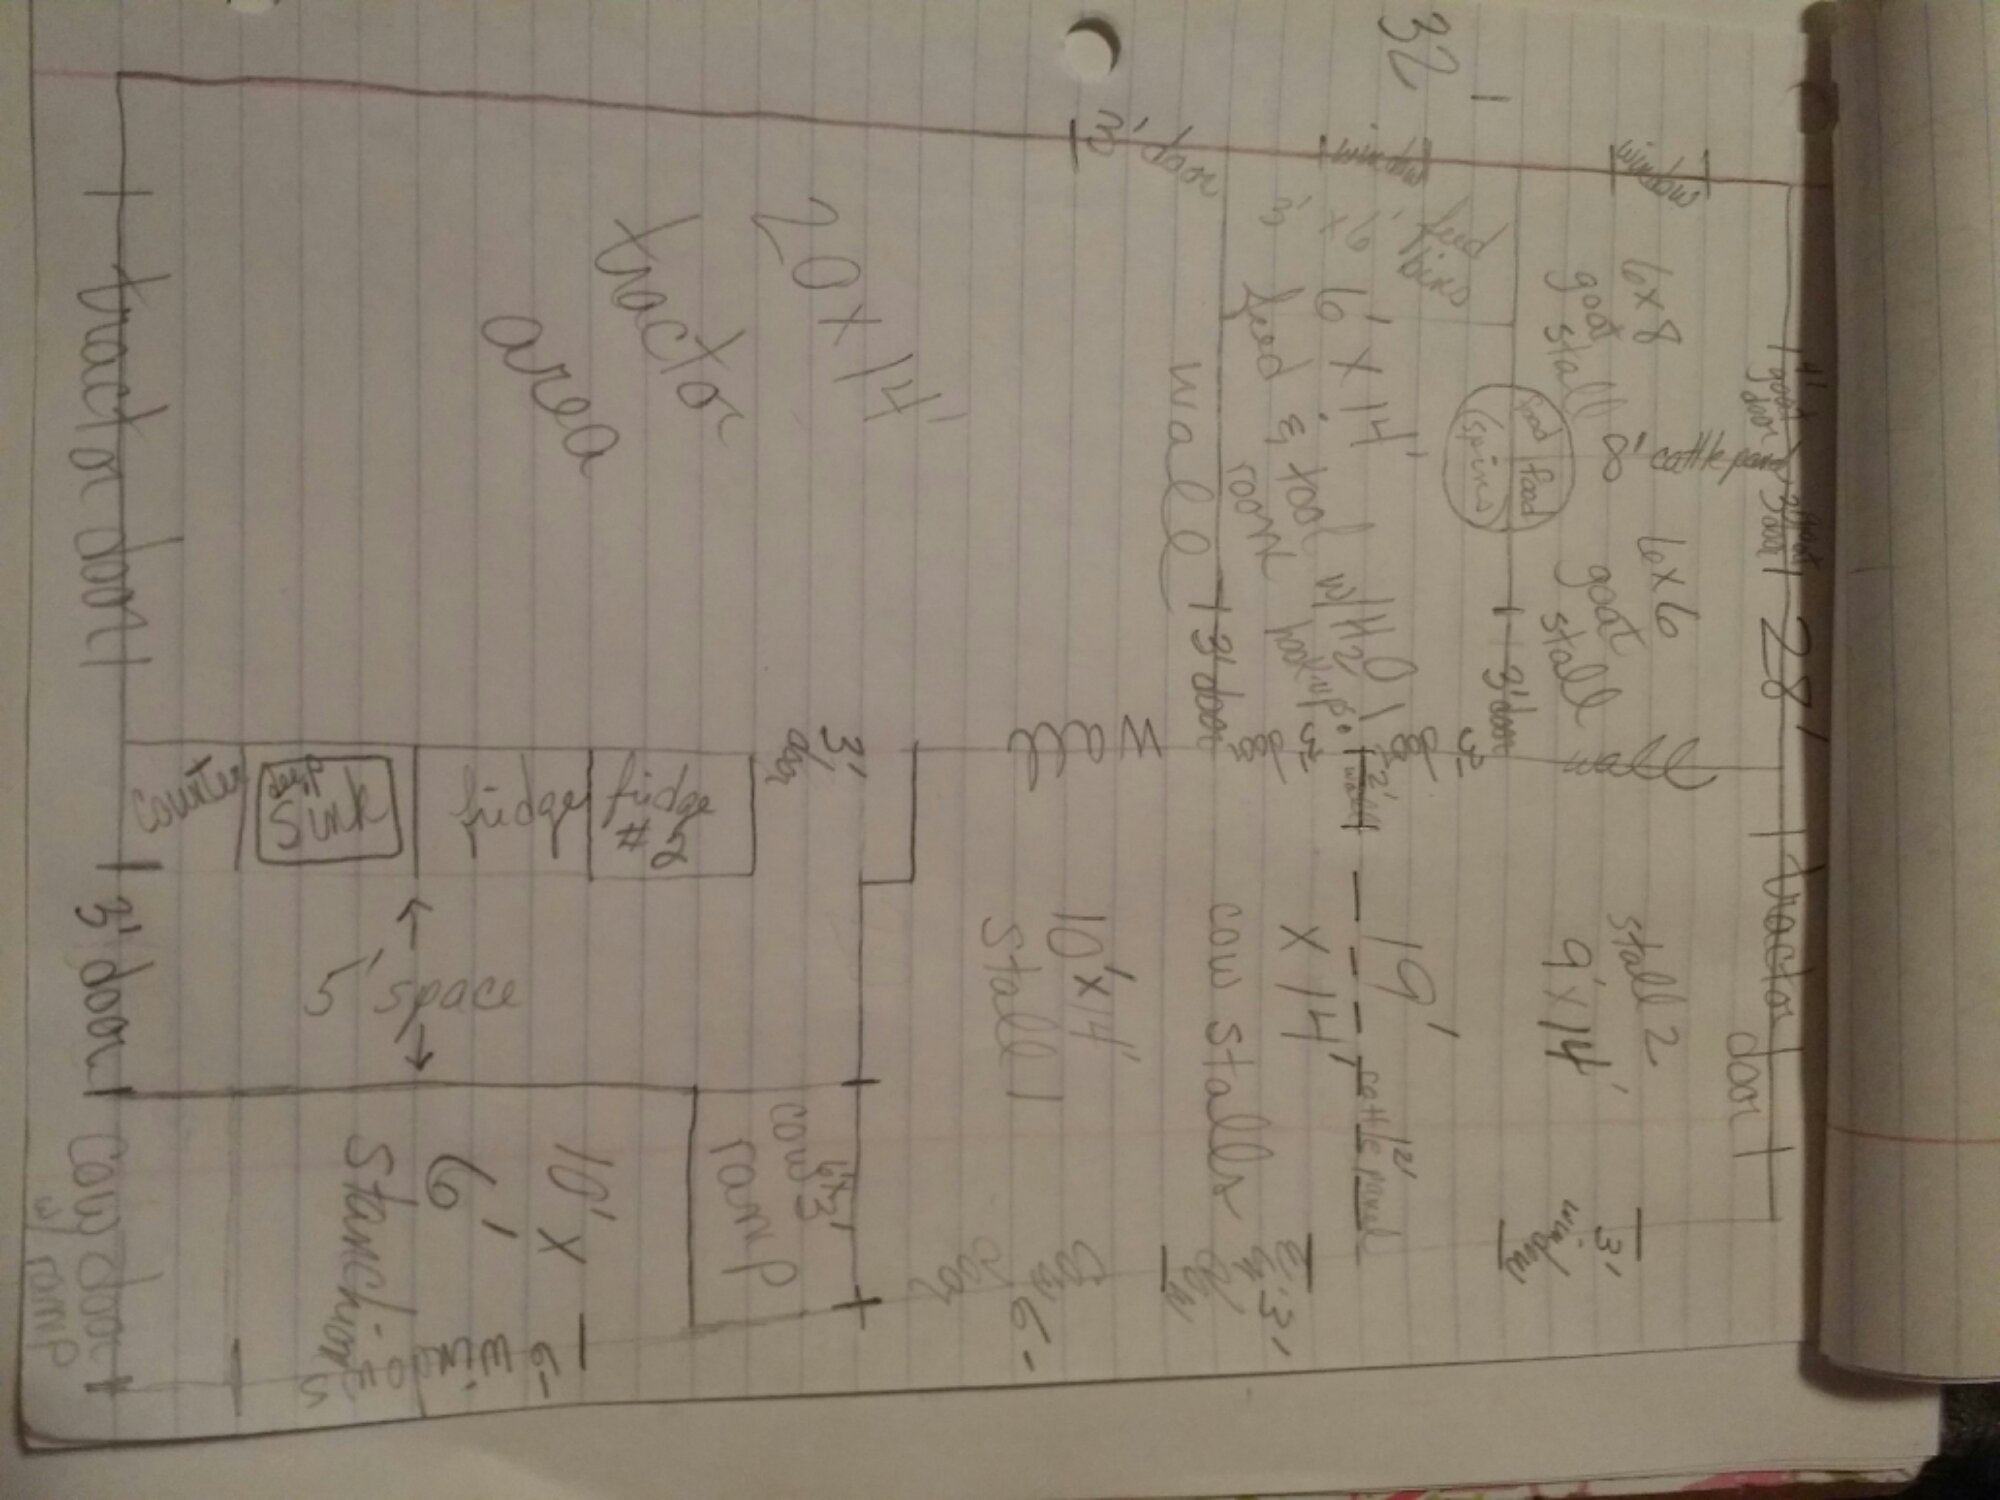 32'
window
window
3' door
28'
4' goat door
3' goat door
tractor door
6x8
goat
stall
8' cattle panel
6x6
goat
stall
wall
3' door
food food
(spins)
feed
bins
3' x 6'
6' x 14'
feed & tool
room
w/ H2O
hookup
wall
3' door
3' door
3' door
2'
wall
stall 2
9' x 14'
3'
window
12'
cattle panel
19'
x 14'
cow stalls
3'
window
10' x 14'
stall 1
wall
6'
cow
door
20 x 14'
tractor
area
3'
door
fridge
#2
fridge
deep
sink
counter
5' space
6' x 3'
cow
ramp
10' x
6'
stanchions
6'
window
tractor door
3' door
cow door
w/ ramp